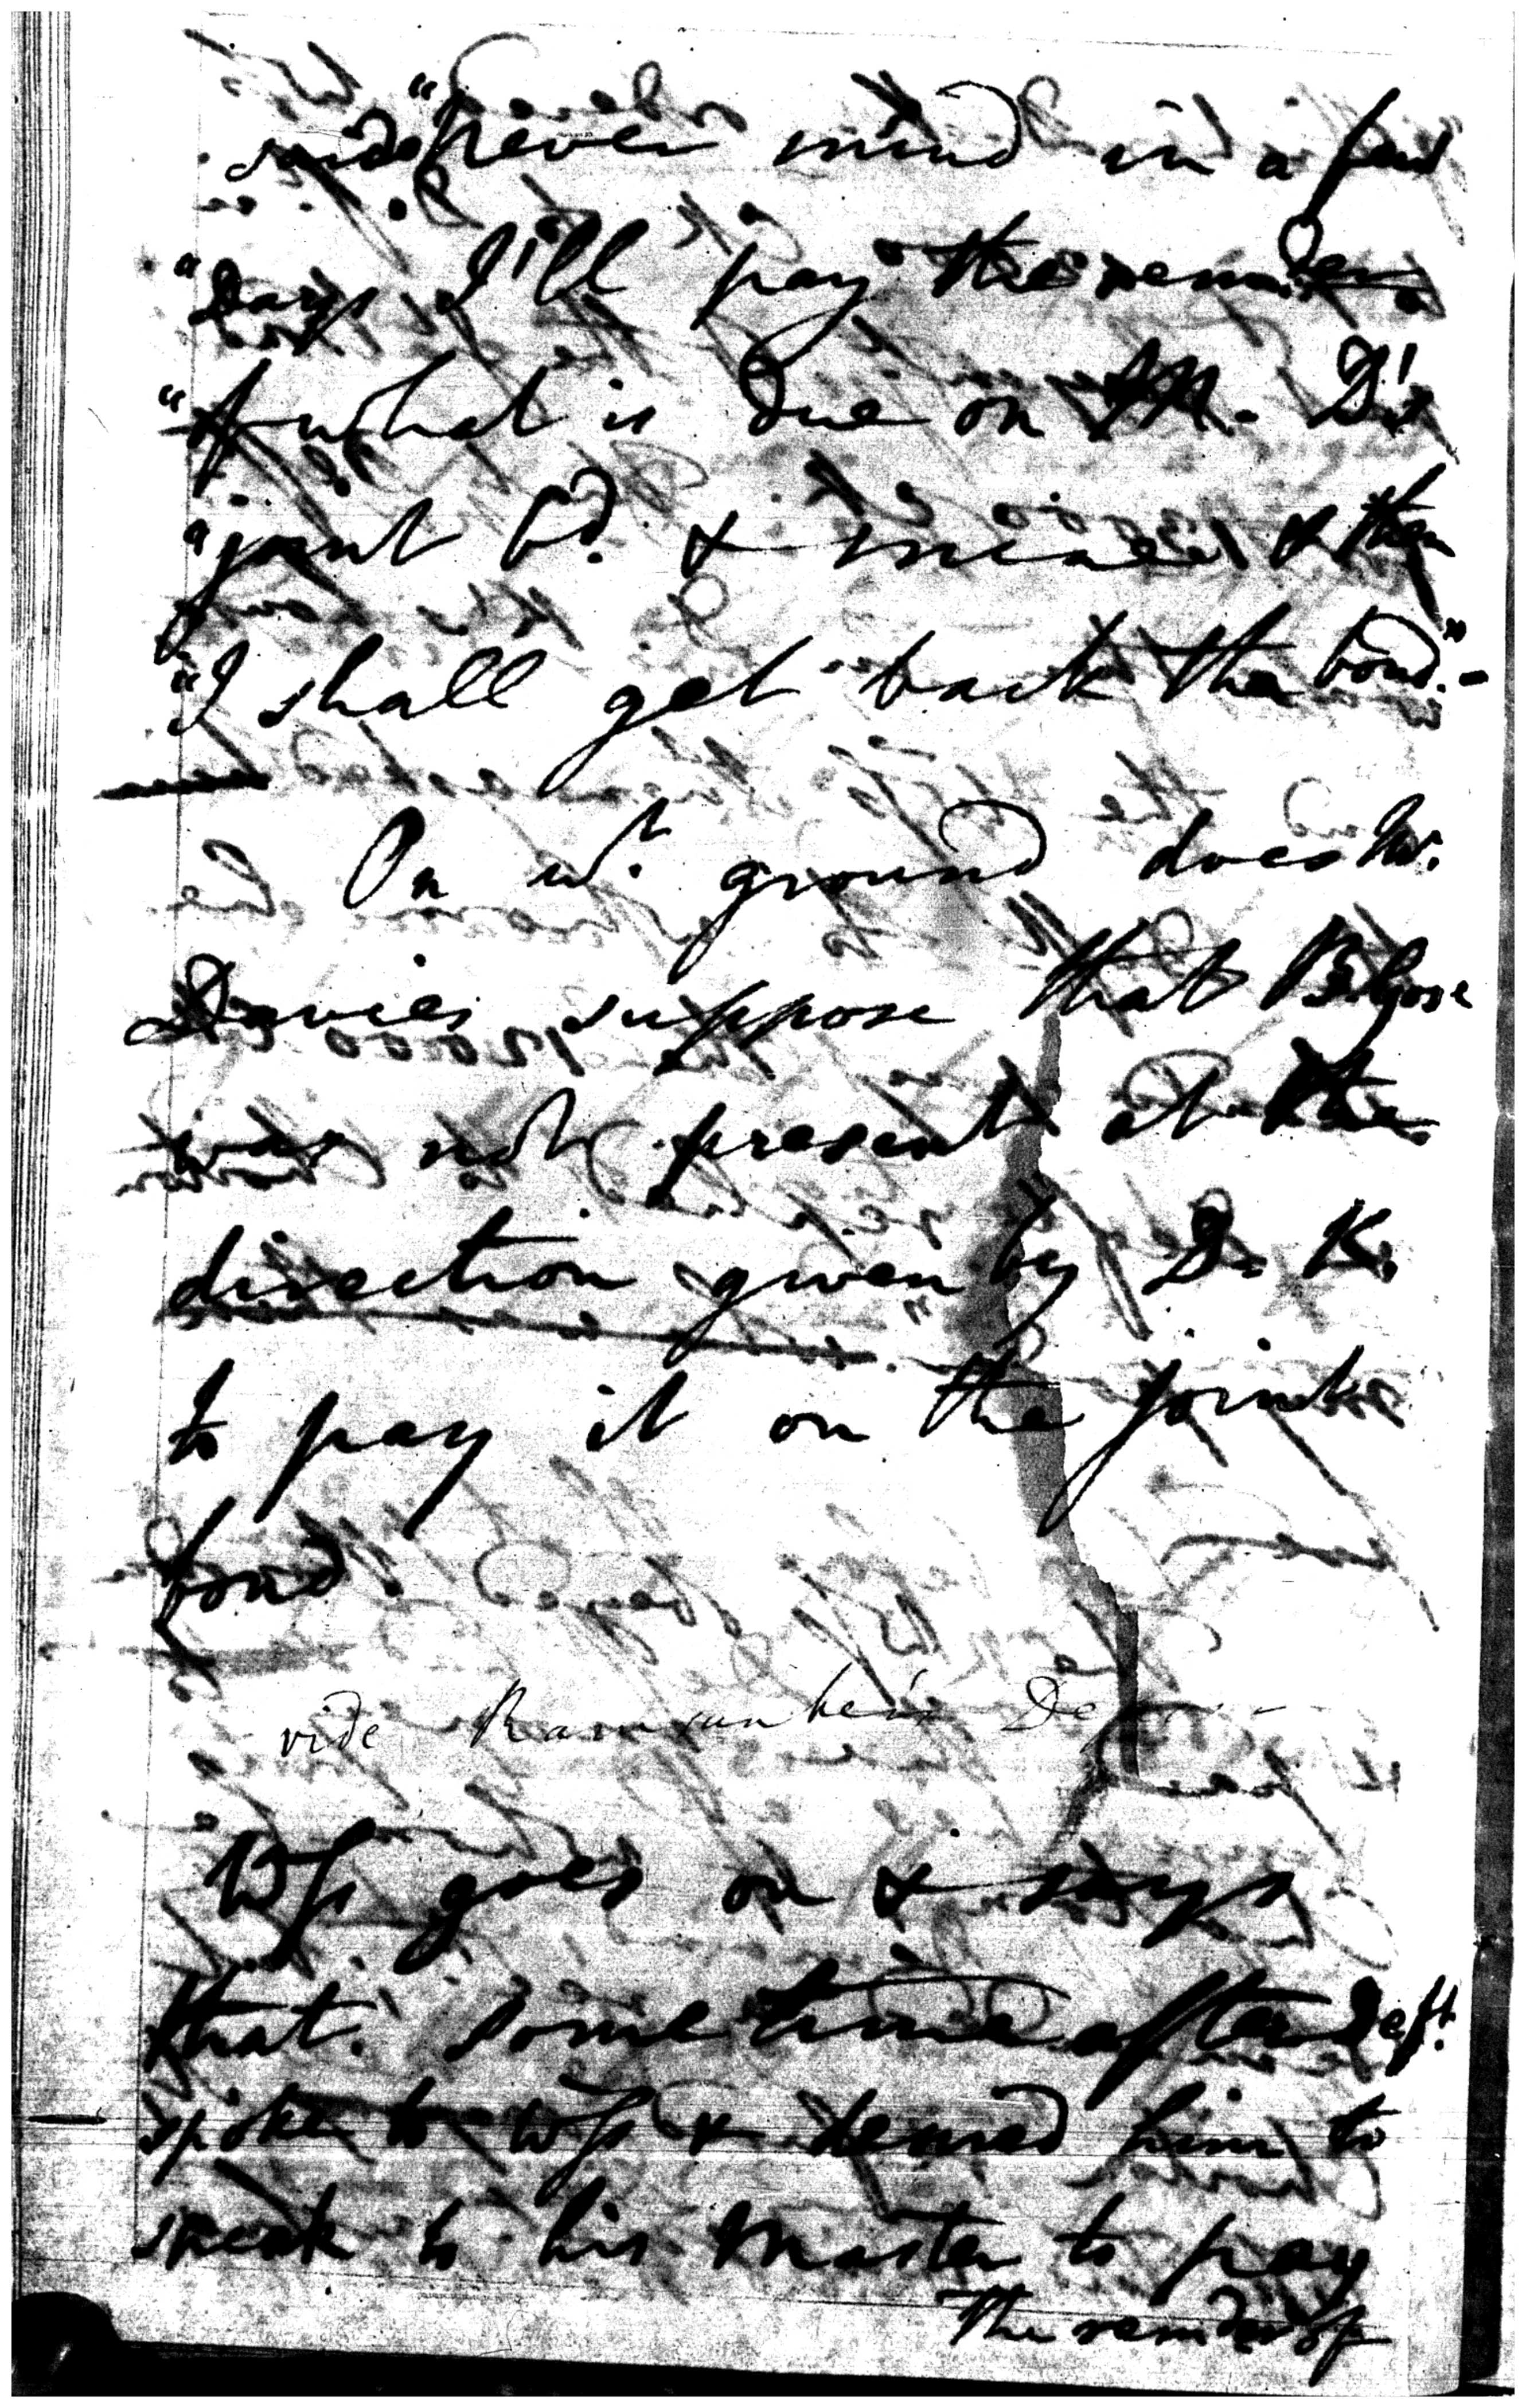 said "never mind in a few
"Days I'll pay the remainder
"of what is due on M. D's
"joint bd. & mine & then
"I shall get back the bond." -
On wt. ground does Mr.
Davies suppose that
was not present at the
direction given by D. K.
to pay it on the joint
bond.
vide
Wss goes on & says
that some time after Deft.
spoke to wss & desired him to
speak to his Master to pay
The remainder of